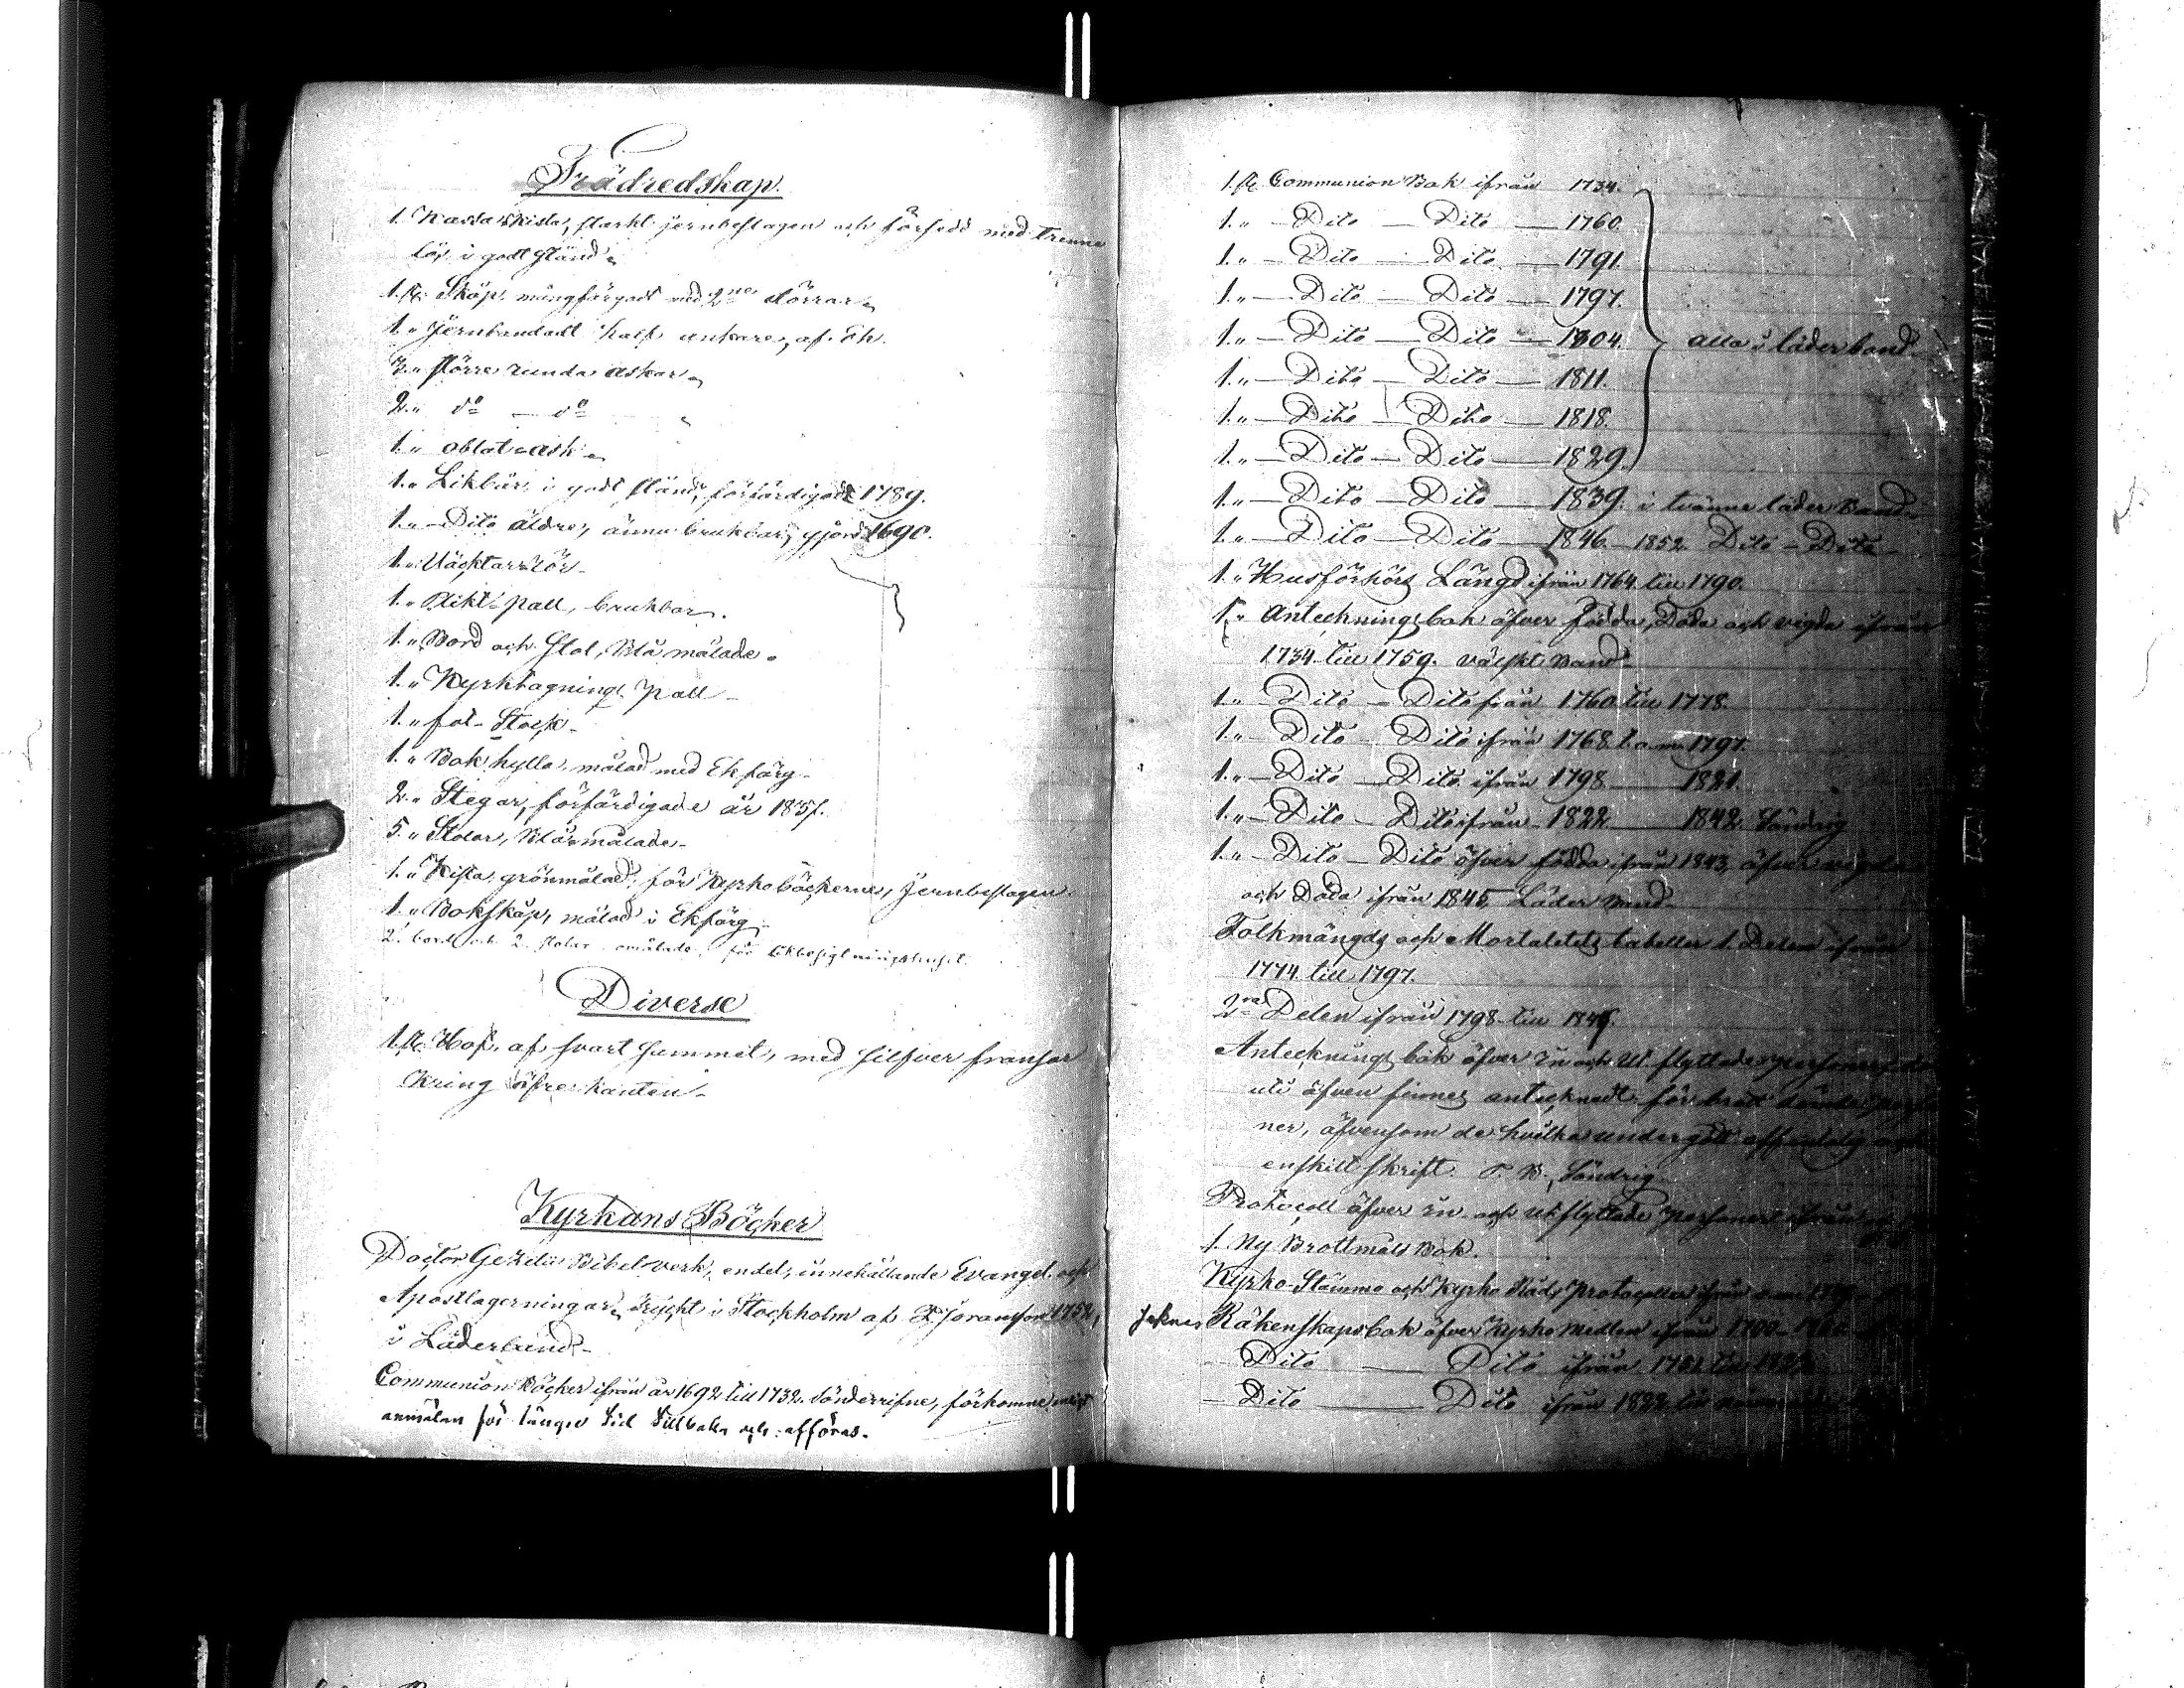 Trädredskap.
1. Kassa kista, starkt jernbeslagen och försedd med trenne
lås i godt stånd
1. st. Skåp mångfärgadt med 2ne dörrar
1. " Jernbandadt half ankare, af Ek.
3. " större runda askar
2. " do — do
1. " oblat-ask
1. " Likbår, i godt stånd, förfärdigadt 1789.
1. " Dito äldre, ännu brukbar, gjord 1690.
1. " Väcktarrör
1. " Plikt-pall, brukbar.
1. " Bord och Stol, Blå målade.
1. " Kyrktagnings Pall
1. " fot-Stock
1. " Bokhylla, målad med Ekfärg
2. " Stegar, förfärdigade år 1857.
5. " Stolar, Blåmålade
1. " Kista, grönmålad, för Kyrkoböckerne, Jernbeslagen.
1. " Bokskåp, målad i Ekfärg
2. bord och 2 stolar omålade för Likbesigtningshuset.
Diverse
1. st. Hof, af svart Sammet, med silfver fransar
Kring öfre kanten
Kyrkans Böcker
Doctor Gezelii Bibelverk, en del, innehållande Evangel. och
Apostlagerningar, tryckt i Stockholm af 1752,
i Läderband
Communion Böcker ifrån år 1692 till 1732 sönderrifne, förkomne enligt
anmälan för länge sed tillbaka och afföras.
1. st. Communion Bok ifrån 1734.
1. " — Dito — Dito — 1760.
1. " — Dito — Dito — 1791.
1. " — Dito — Dito — 1797.
1. " — Dito — Dito — 1804. alla i läderband
1. " — Dito — Dito — 1811.
1. " — Dito — Dito — 1818.
1. " — Dito — Dito — 1829.
1. " — Dito — Dito — 1839. i tvänne läder Band
1. " — Dito — Dito — 1846 — 1852 Dito — Dito
1. " Husförhörs Längd ifrån 1764 till 1790.
1. " Anteckningsbok öfver födda, Döda och vigda ifrån
1734 till 1759. välskt Band
1. " Dito — Dito från 1760 till 1778.
1. " Dito — Dito ifrån 1768 t.o.m. 1797.
1. " — Dito — Dito ifrån 1798 — 1821.
1. " — Dito — Dito ifrån 1822 — 1842. Söndrig
1. " — Dito — Dito öfver födda ifrån 1843, öfver vigda
och Döda ifrån 1845 Läder Band
Folkmängds och Mortalitets tabeller 1. Delen ifrån
1774 till 1797.
2ra Delen ifrån 1798 till
Antecknings bok öfver In och Ut flyttade personer,
uti äfven finnes antecknadt för brott dömde
ner, äfvensom de hvilka undergått offentelig och
enskilt skrift. Söndrig
Protocoll öfver in- och utflyttade personer ifrån
1. Ny Brottmåls Bok.
Kyrko-Stämmo och Kyrko Råds protocoller ifrån
saknas Räkenskapsbok öfver Kyrko Medlen ifrån 1700
— Dito — Dito ifrån 1781 till
— Dito — Dito ifrån 1822 till